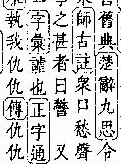 舊典楚辭九思令
師古註衆口愁聲
之甚者曰 又
字彙譌也正字通
執我仇仇傳仇仇